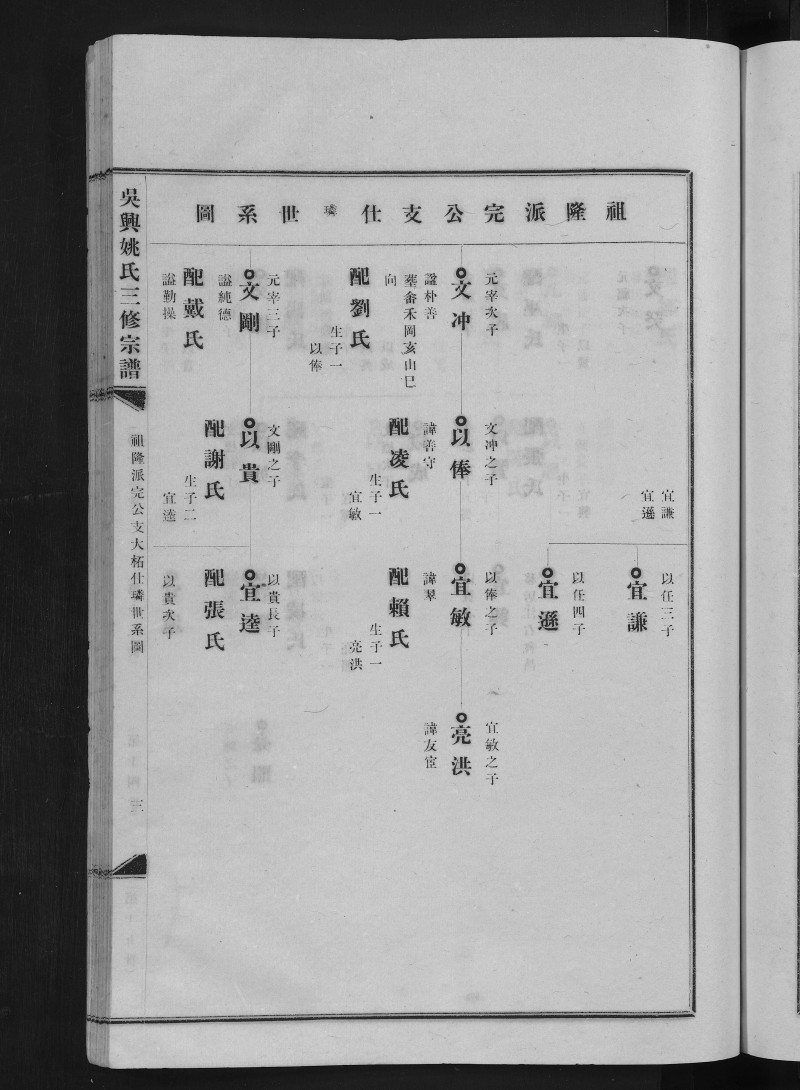 祖隆派完公支仕璘世系圖
宜謙
宜遜
以任三子
宜謙
以任四子
宜遜
元宰次子
文冲
諡朴善
墓畬禾岡亥山巳
向
配劉氏
生子一
以俸
文冲之子
以俸
諱善守
配凌氏
生子一
宜敏
以俸之子
宜敏
諱翠
配賴氏
生子一
亮洪
宜敏之子
亮洪
諱友宦
元宰三子
文剛
諡純德
配戴氏
諡勤操
文剛之子
以貴
配謝氏
生子二
宜逵
以貴長子
宜逵
配張氏
以貴次子
吳興姚氏三修宗譜
祖隆派完公支大柘仕璘世系圖
三